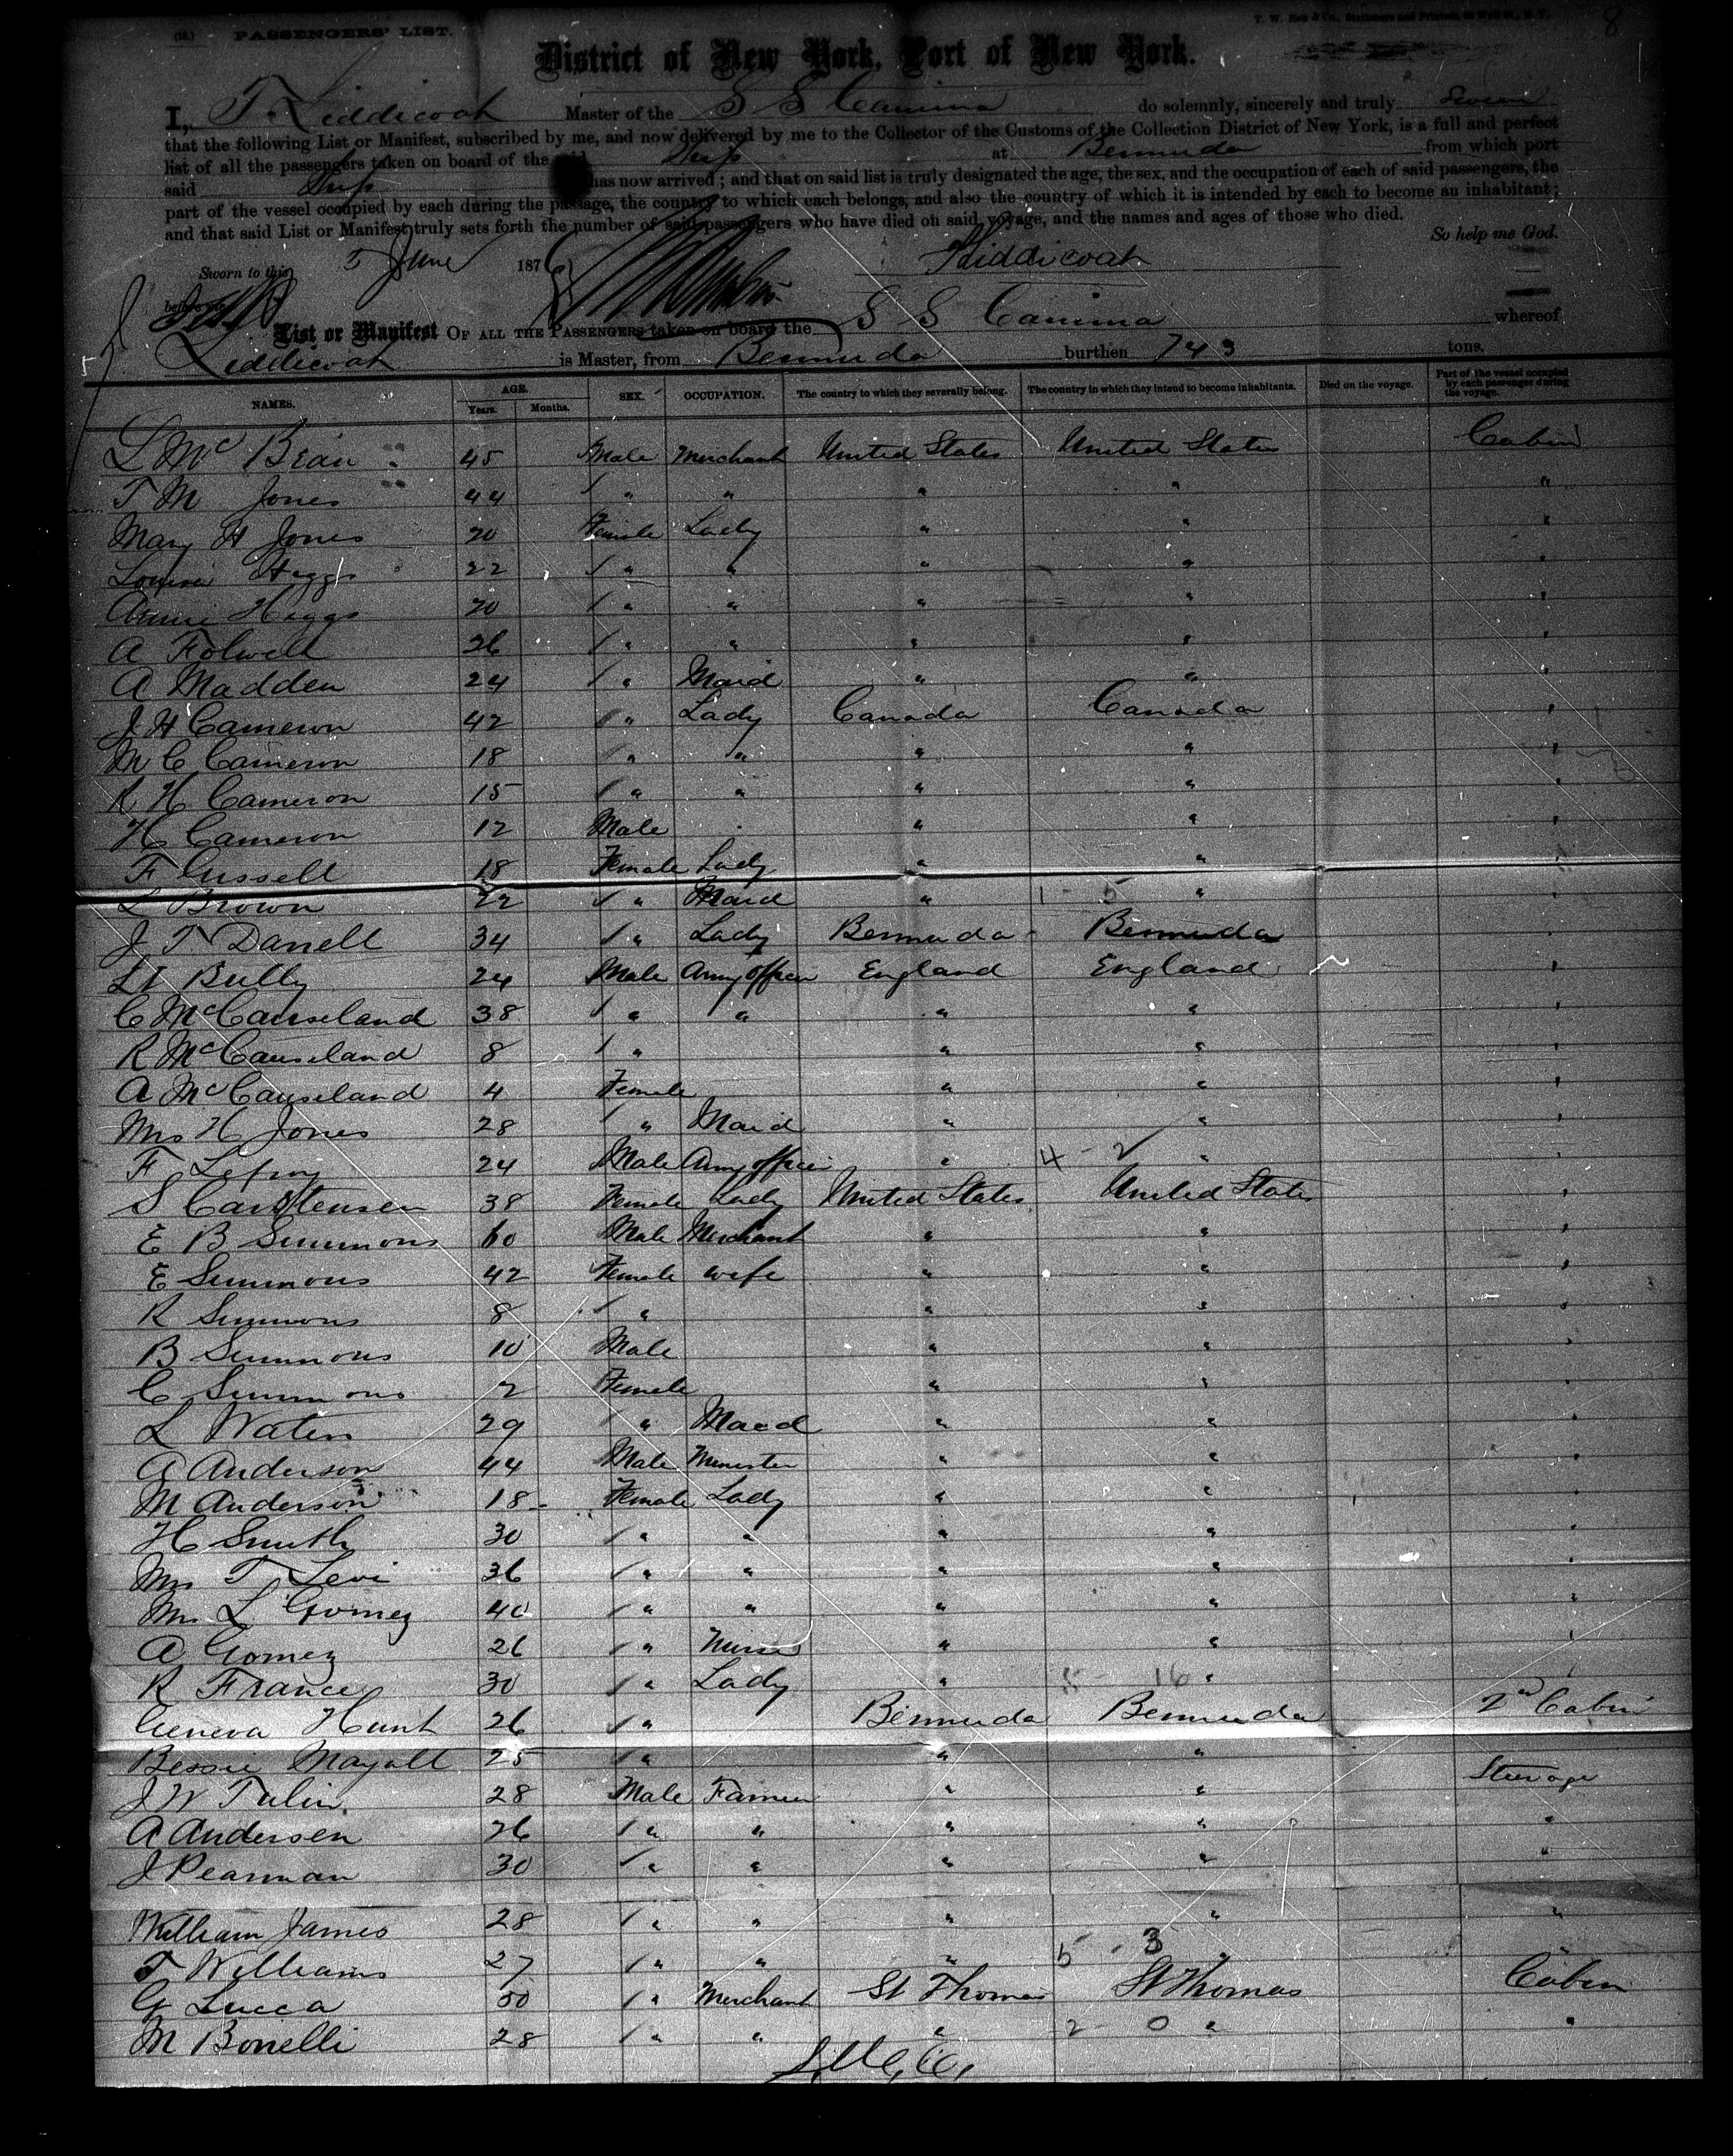 (10.) PASSENGERS' LIST. 8
District of New York, Port of New York.
I, T. Liddicoat Master of the S S Canima do solemnly, sincerely and truly swear
that the following List or Manifest, subscribed by me, and now delivered by me to the Collector of the Customs of the Collection District of New York, is a full and perfect
list of all the passengers taken on board of the said Ship at Bermuda from which port
said Ship has now arrived; and that on said list is truly designated the age, the sex, and the occupation of each of said passengers, the
part of the vessel occupied by each during the passage, the country to which each belongs, and also the country of which it is intended by each to become an inhabitant;
and that said List or Manifest truly sets forth the number of said passengers who have died on said voyage, and the names and ages of those who died.
So help me God.
Sworn to this 5 June 1876 Liddicoat
before
List or Manifest OF ALL THE PASSENGERS taken on board the S S Canima whereof
Liddicoat is Master, from Bermuda burthen 743 tons.
NAMES. AGE. Years. Months. SEX. OCCUPATION. The country to which they severally belong. The country in which they intend to become inhabitants. Died on the voyage. Part of the vessel occupied by each passenger during the voyage.
L Mc Bean 45 Male Merchant United States United States Cabin
T M Jones 44 " " " " "
Mary H Jones 20 Female Lady " " "
Louisa Higgs 22 " " " " "
Annie Higgs 20 " " " " "
A Folwell 26 " " " " "
A Madden 24 " Maid " " "
J H Cameron 42 " Lady Canada Canada "
M C Cameron 18 " " " " "
R H Cameron 15 " " " " "
H Cameron 12 Male " " "
F Gussell 18 Female Lady " " "
L Brown 22 " Maid " 1 - 5 " "
J T Darrell 34 " Lady Bermuda Bermuda "
Lt Bully 24 Male Army officer England England "
C McCauseland 38 " " " " "
R McCauseland 8 " " " "
A McCauseland 4 Female " " "
Mrs H Jones 28 " Maid " " "
F Lefroy 24 Male Army officer " 4 - 2 " "
S Carstensen 38 Female Lady United States United States "
E B Simmons 60 Male Merchant " " "
E Simmons 42 Female wife " " "
R Simmons 8 " " " "
B Simmons 10 Male " " "
C Simmons 2 Female " " "
L Waters 29 " Maid " " "
A Anderson 44 Male Minister " " "
M Anderson 18 Female Lady " " "
H Smith 30 " " " " "
Mrs T Levi 36 " " " " "
Mrs L Gomez 40 " " " " "
A Gomez 26 " Nurse " " "
R France 30 " Lady " 16 " "
Geneva Hunt 26 " Bermuda Bermuda 2nd Cabin
Bessie Mayall 25 " " "
J W Tulin 28 Male Farmer " " Steerage
A Andersen 26 " " " " "
J Pearman 30 " " " " "
William James 28 " " " " "
T Williams 27 " " " 5 - 3 " "
G Lucca 50 " Merchant St Thomas St Thomas Cabin
M Bonelli 28 " " " 2 0 " "